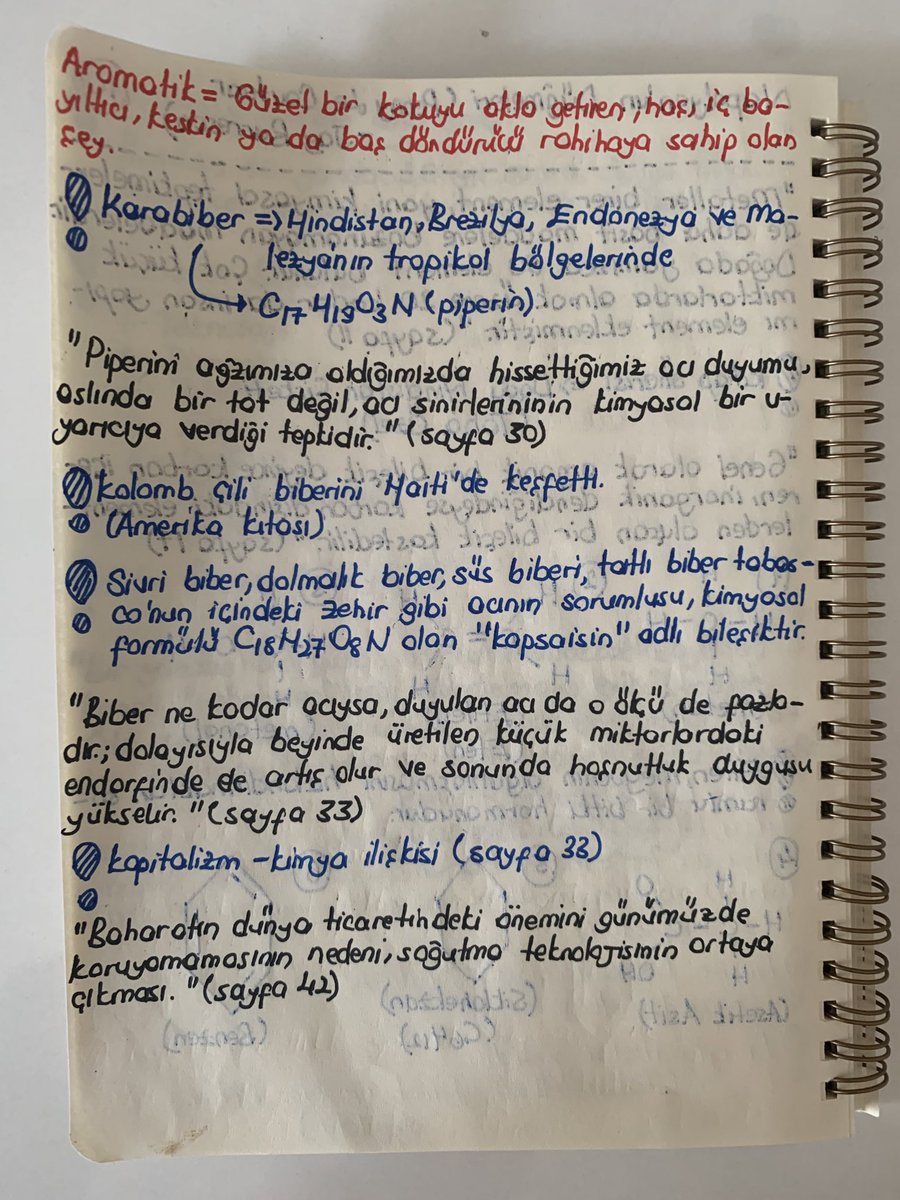 Aromatik = Güzel bir kokuyu akla getiren, hoş, iç ba-
yıltıcı, keskin ya da baş döndürücü rahihaya sahip olan
şey.
Karabiber => Hindistan, Brezilya, Endonezya ve Ma-
lezya'nın tropikal bölgelerinde
C17H19O3N (piperin)
"Piperini ağzımıza aldığımızda hissettiğimiz acı duyumu,
aslında bir tat değil, acı sinirlerininin kimyasal bir u-
yarıcıya verdiği tepkidir." (sayfa 30)
Kolomb çili biberini Haiti'de keşfetti.
(Amerika kıtası)
Sivri biber, dolmalık biber, süs biberi, tatlı biber tabas-
co'nun içindeki zehir gibi acının sorumlusu, kimyasal
formülü C18H27O8N olan "kapsaisin" adlı bileşiktir.
"Biber ne kadar acıysa, duyulan acı da o ölçü de fazla-
dır.; dolayısıyla beyinde üretilen küçük miktarlardaki
endorfinde de artış olur ve sonunda hoşnutluk duygusu
yükselir." (sayfa 33)
kapitalizm - kimya ilişkisi (sayfa 33)
"Baharatın dünya ticaretindeki önemini günümüzde
koruyamamasının nedeni, soğutma teknolojisinin ortaya
çıkması." (sayfa 42)